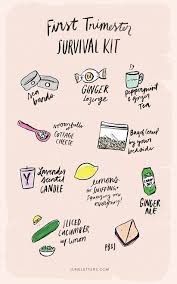 First Trimester
SURVIVAL KIT
Sea
bands
GINGER
lozenge
peppermint
& ginger
TEA
COTTAGE
CHEESE
by your
bedside
Lavender
Scented
CANDLE
Lemons
for SNIFFING +
squeezing on
everything!
GINGER
ALE
SLICED
CUCUMBER
w/ lemon
PB&J